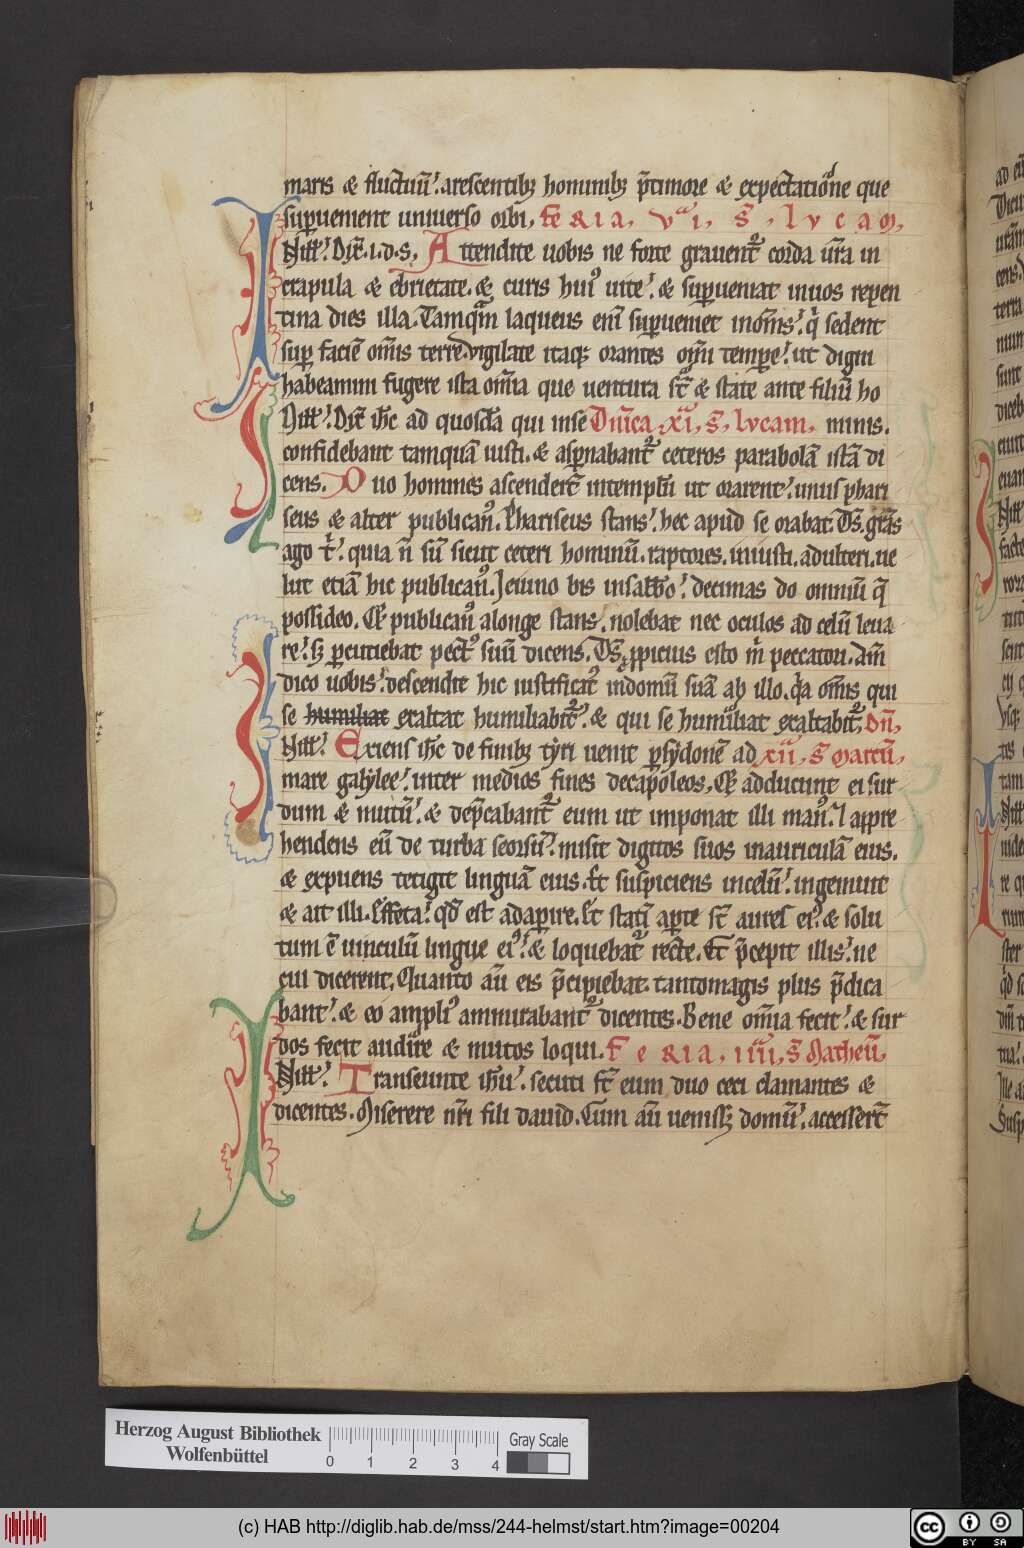 maris & fluctuū. arescentibꝫ hominibꝫ p̄timore & expectatiōne que
suꝑuenient uniuerso orbi, feria, vi, S̄, lvcam,
N illꝰ. Dix̄.i.d.s, Attendite uobis ne forte grauent᷑ corda ūra in
crapula & ebrietate. & curis huiꝰ uite. & suꝑueniat inuos repen
tina dies illa. Tamqᷓm laqueus enī suꝑueniet inom̄s. q̇ sedent
suꝑ faciē om̄is terre. vigilate itaqꝫ orantes om̄i tempꝑe. ut digni
habeamini fugere ista om̄ia que uentura st̄ & state ante filiū ho
N illꝰ. Dix̄ ih̄c ad quosdā qui inse Dn̄ica xi, S̄, lvcam, minis.
confidebant tamquā iusti. & asꝑnabant᷑ ceteros parabolā istā di
cens. Duo homines ascendert̄ intemplū ut orarent. unus phari
seus & alter publicanꝰ. Phariseus stans. hec apud se orabat. Ds̄. grās
ago t̄. quia n̄ sū sicut ceteri hominū. raptores. iniusti. adulteri. ue
lut etiā hic publicanꝰ. Ieiuno bis insabb̄o. decimas do omniū q̄
possideo. Et publicanꝰ alonge stans. nolebat nec oculos ad celū leua
re. sꝫ ꝑcutiebat pectꝰ suū dicens. Ds̄ ꝓpicius esto m̄ peccatori. Am̄
dico uobis. descendit hic iustificatꝰ indomū suā ab illo. q̇a om̄is qui
se humiliat exaltat humiliabit᷑. & qui se humiliat exaltabit᷑. Dn̄,
N illꝰ. Exiens ih̄c de finibꝫ tyri uenit ꝑsydonē ad xii, S̄ Marcū,
mare galylee. inter medios fines decapoleos. Et adducunt ei sur
dum & mutū. & dep̄cabant᷑ eum ut imponat illi manꝰ. ⁊ appre
hendens eū de turba seorsū. misit digitos suos inauriculā eius.
& expuens tetigit linguā eius. Et suspiciens incelū. ingemuit
& ait illi. Effeta. qd̄ est adaꝑire. Et statī aꝑte st̄ aures eiꝰ. & solu
tum ē uinculū lingue eiꝰ. & loquebat᷑ recte. Et p̄cepit illis. ne
cui dicerent. Quanto aū eis p̄cipiebat. tantomagis plus p̄dica
bant. & eo ampliꝰ ammirabant᷑ dicentes. Bene om̄ia fecit. & sur
dos fecit audire & mutos loqui. Feria, iiii, S̄ Matheū,
N illꝰ. Transeunte ih̄u. secuti st̄ eum duo ceci clamantes &
dicentes. Miserere nr̄i fili dauid. Cum aū uenissꝫ domū. accessert̄
Herzog August Bibliothek
Wolfenbüttel
0 1 2 3 4
Gray Scale
(c) HAB http://diglib.hab.de/mss/244-helmst/start.htm?image=00204
cc BY SA